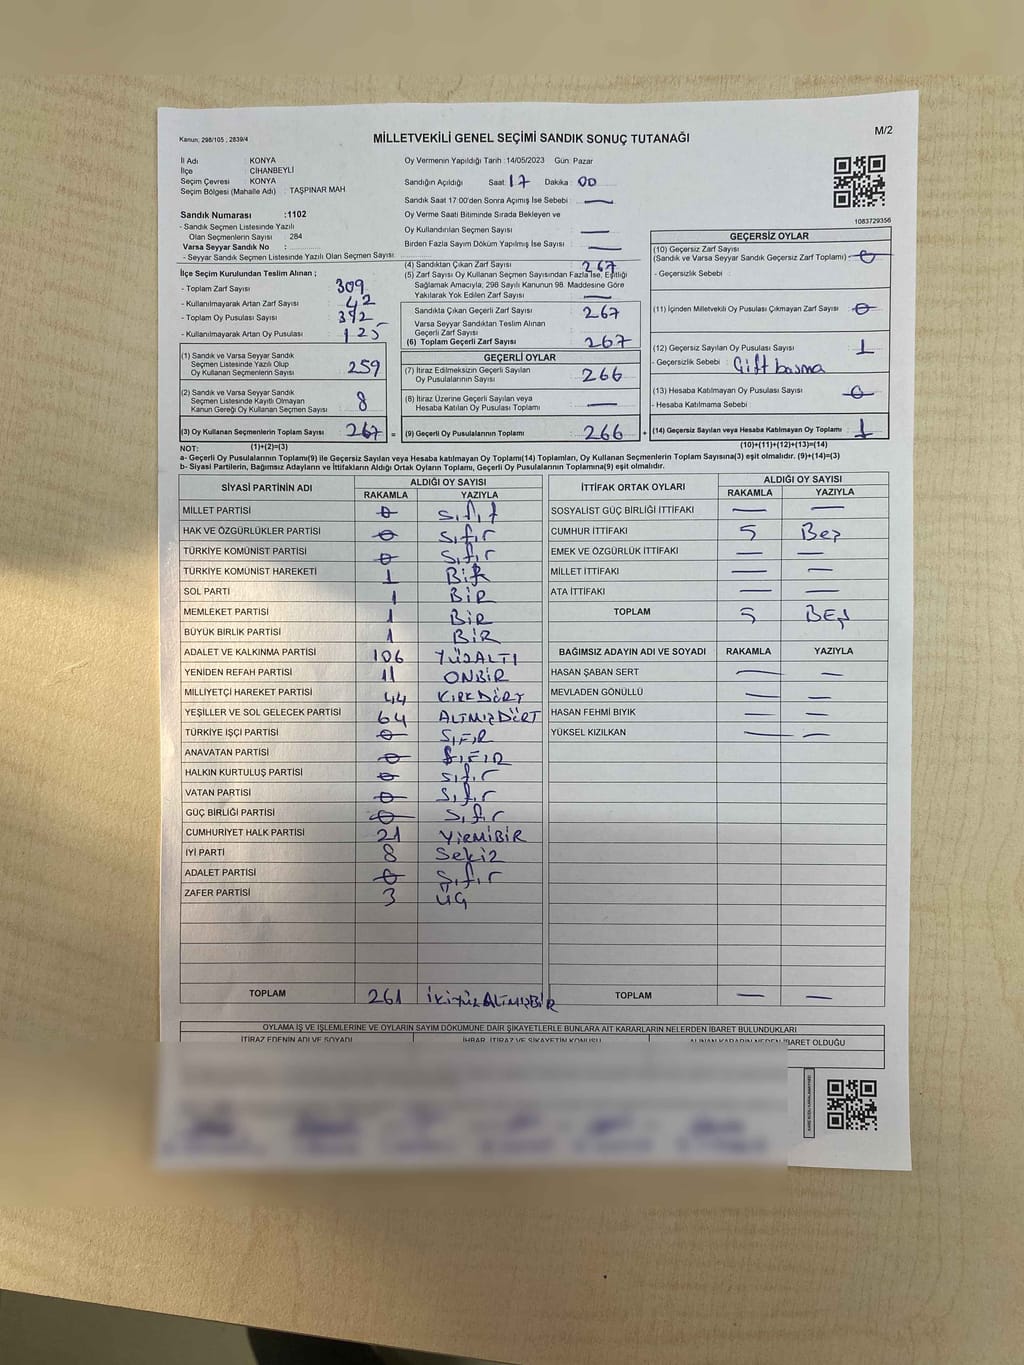 Kanun; 298/105 ; 2839/4
MİLLETVEKİLİ GENEL SEÇİMİ SANDIK SONUÇ TUTANAĞI
M/2
İl Adı : KONYA
İlçe : CİHANBEYLİ
Seçim Çevresi : KONYA
Seçim Bölgesi (Mahalle Adı) : TAŞPINAR MAH.
Sandık Numarası :1102
- Sandık Seçmen Listesinde Yazılı
Olan Seçmenlerin Sayısı : 284
Varsa Seyyar Sandık No :
- Seyyar Sandık Seçmen Listesinde Yazılı Olan Seçmen Sayısı
Oy Vermenin Yapıldığı Tarih :14/05/2023 Gün: Pazar
Sandığın Açıldığı Saat: 17 Dakika : 00
Sandık Saat 17:00'den Sonra Açımış İse Sebebi : —
Oy Verme Saati Bitiminde Sırada Bekleyen ve
Oy Kullandırılan Seçmen Sayısı : —
Birden Fazla Sayım Döküm Yapılmış İse Sayısı : —
1083729356
İlçe Seçim Kurulundan Teslim Alınan ;
- Toplam Zarf Sayısı : 309
- Kullanılmayarak Artan Zarf Sayısı : 42
- Toplam Oy Pusulası Sayısı : 392
- Kullanılmayarak Artan Oy Pusulası : 125
(1) Sandık ve Varsa Seyyar Sandık
Seçmen Listesinde Yazılı Olup
Oy Kullanan Seçmenlerin Sayısı : 259
(2) Sandık ve Varsa Seyyar Sandık
Seçmen Listesinde Kayıtlı Olmayan
Kanun Gereği Oy Kullanan Seçmen Sayısı : 8
(3) Oy Kullanan Seçmenlerin Toplam Sayısı : 267 =
(1)+(2)=(3)
(4) Sandıktan Çıkan Zarf Sayısı : 267
(5) Zarf Sayısı Oy Kullanan Seçmen Sayısından Fazla İse, Eşitliği
Sağlamak Amacıyla, 298 Sayılı Kanunun 98. Maddesine Göre
Yakılarak Yok Edilen Zarf Sayısı : —
Sandıkta Çıkan Geçerli Zarf Sayısı : 267
Varsa Seyyar Sandıktan Teslim Alınan
Geçerli Zarf Sayısı :
(6) Toplam Geçerli Zarf Sayısı : 267
GEÇERLİ OYLAR
(7) İtiraz Edilmeksizin Geçerli Sayılan
Oy Pusulalarının Sayısı : 266
(8) İtiraz Üzerine Geçerli Sayılan veya
Hesaba Katılan Oy Pusulası Toplamı : —
(9) Geçerli Oy Pusulalarının Toplamı : 266 +
GEÇERSİZ OYLAR
(10) Geçersiz Zarf Sayısı
(Sandık ve Varsa Seyyar Sandık Geçersiz Zarf Toplamı) : 0
- Geçersizlik Sebebi :
(11) İçinden Milletvekili Oy Pusulası Çıkmayan Zarf Sayısı : 0
(12) Geçersiz Sayılan Oy Pusulası Sayısı : 1
- Geçersizlik Sebebi : Çift basma
(13) Hesaba Katılmayan Oy Pusulası Sayısı : 0
- Hesaba Katılmama Sebebi :
(14) Geçersiz Sayılan veya Hesaba Katılmayan Oy Toplamı : 1
(10)+(11)+(12)+(13)=(14)
NOT:
a- Geçerli Oy Pusulalarının Toplamı(9) ile Geçersiz Sayılan veya Hesaba katılmayan Oy Toplamı(14) Toplamları, Oy Kullanan Seçmenlerin Toplam Sayısına(3) eşit olmalıdır. (9)+(14)=(3)
b- Siyasi Partilerin, Bağımsız Adayların ve İttifakların Aldığı Ortak Oyların Toplamı, Geçerli Oy Pusulalarının Toplamına(9) eşit olmalıdır.
SİYASİ PARTİNİN ADI ALDIĞI OY SAYISI
RAKAMLA YAZIYLA
MİLLET PARTİSİ 0 sıfıf
HAK VE ÖZGÜRLÜKLER PARTİSİ 0 sıfır
TÜRKİYE KOMÜNİST PARTİSİ 0 sıfır
TÜRKİYE KOMÜNİST HAREKETİ 1 BİR
SOL PARTİ 1 BİR
MEMLEKET PARTİSİ 1 BİR
BÜYÜK BİRLİK PARTİSİ 1 BİR
ADALET VE KALKINMA PARTİSİ 106 YÜZALTI
YENİDEN REFAH PARTİSİ 11 ONBİR
MİLLİYETÇİ HAREKET PARTİSİ 44 KIRKDÖRT
YEŞİLLER VE SOL GELECEK PARTİSİ 64 ALTMIŞDÖRT
TÜRKİYE İŞÇİ PARTİSİ 0 SIFIR
ANAVATAN PARTİSİ 0 SIFIR
HALKIN KURTULUŞ PARTİSİ 0 sıfır
VATAN PARTİSİ 0 sıfır
GÜÇ BİRLİĞİ PARTİSİ 0 sıfır
CUMHURİYET HALK PARTİSİ 21 YİRMİBİR
İYİ PARTİ 8 Sekiz
ADALET PARTİSİ 0 sıfır
ZAFER PARTİSİ 3 ÜÇ
TOPLAM 261 İKİYÜZALTMIŞBİR
İTTİFAK ORTAK OYLARI ALDIĞI OY SAYISI
RAKAMLA YAZIYLA
SOSYALİST GÜÇ BİRLİĞİ İTTİFAKI — —
CUMHUR İTTİFAKI 5 Beş
EMEK VE ÖZGÜRLÜK İTTİFAKI — —
MİLLET İTTİFAKI — —
ATA İTTİFAKI — —
TOPLAM 5 BEŞ
BAĞIMSIZ ADAYIN ADI VE SOYADI RAKAMLA YAZIYLA
HASAN ŞABAN SERT — —
MEVLADEN GÖNÜLLÜ — —
HASAN FEHMİ BIYIK — —
YÜKSEL KIZILKAN — —
TOPLAM — —
OYLAMA İŞ VE İŞLEMLERİNE VE OYLARIN SAYIM DÖKÜMÜNE DAİR ŞİKAYETLERLE BUNLARA AİT KARARLARIN NELERDEN İBARET BULUNDUKLARI
İTİRAZ EDENİN ADI VE SOYADI İHBAR, İTİRAZ VE ŞİKAYETİN KONUSU ALINAN KARARIN NEDEN İBARET OLDUĞU